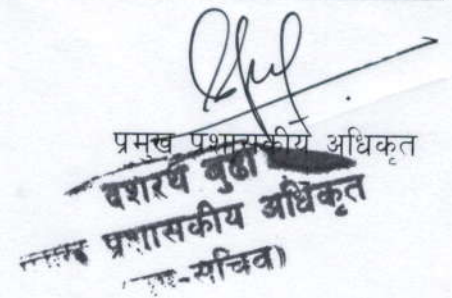 प्रमुख प्रशासकीय अधिकृत
दशरथ बुढा
प्रशासकीय अधिकृत
-सचिव)